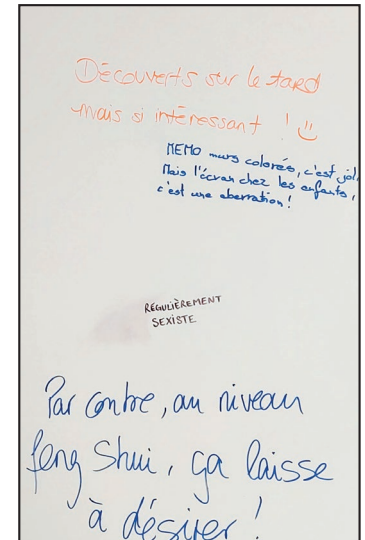 Découverts sur le tard
mais si intéressant ! :)
MEMO murs colorés, c'est joli
Mais l'écran chez les enfants,
c'est une aberration !
RÉGULIÈREMENT
SEXISTE
Par contre, au niveau
feng Shui, ça laisse
à désirer !